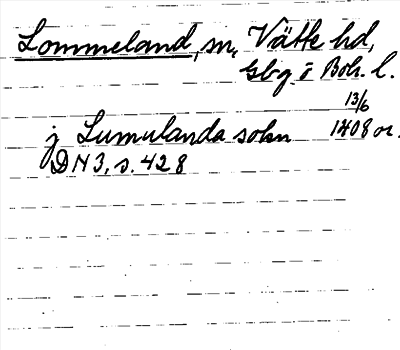 Lommeland, sn, Vätte hd,
Gbg o Boh. l.
13/6
j Lumulanda sokn 1408 or.
DN 3, s. 428